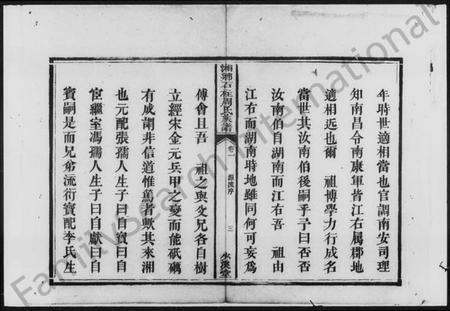 年時世適相當也官調南安司理
知南昌令南康軍皆江右屬郡地
適相近也爾　祖博學力行成名
當世其汝南伯後嗣乎予曰否否
汝南伯自湖南而江右吾　祖由
江右而湖南時地雖同何可妄爲
湘鄉石柱周氏家譜
卷一　源流序　三
傅會且吾　祖之與父兄各自樹
立經宋金元兵甲之變而能砥礪
有成謂非信道惟篤者歟其來湘
也元配張孺人生子曰自賓曰自
宦繼室馮孺人生子曰自獻曰自
賓嗣是而兄弟流衍賓配李氏生
FamilySearch International